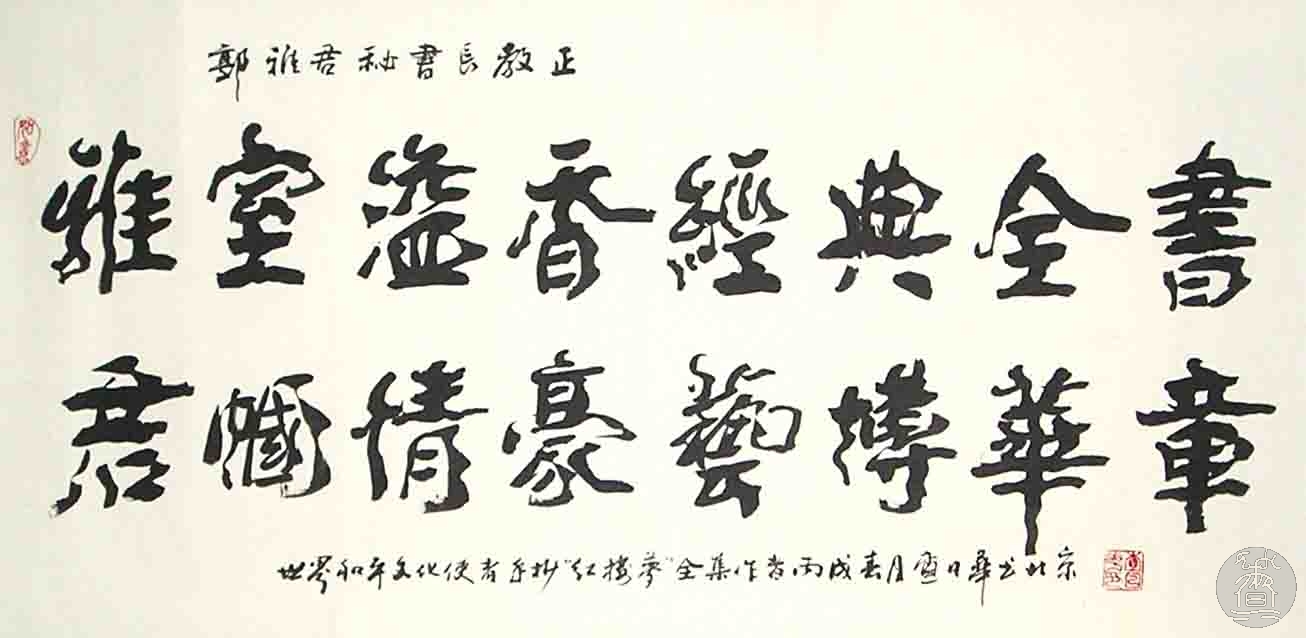 郭雅君秘书長教正
雅室溢香經典全書
君幗情豪藝博華章
世界和平文化使者手抄“红楼夢”全集作者丙戌春月 日華书北京